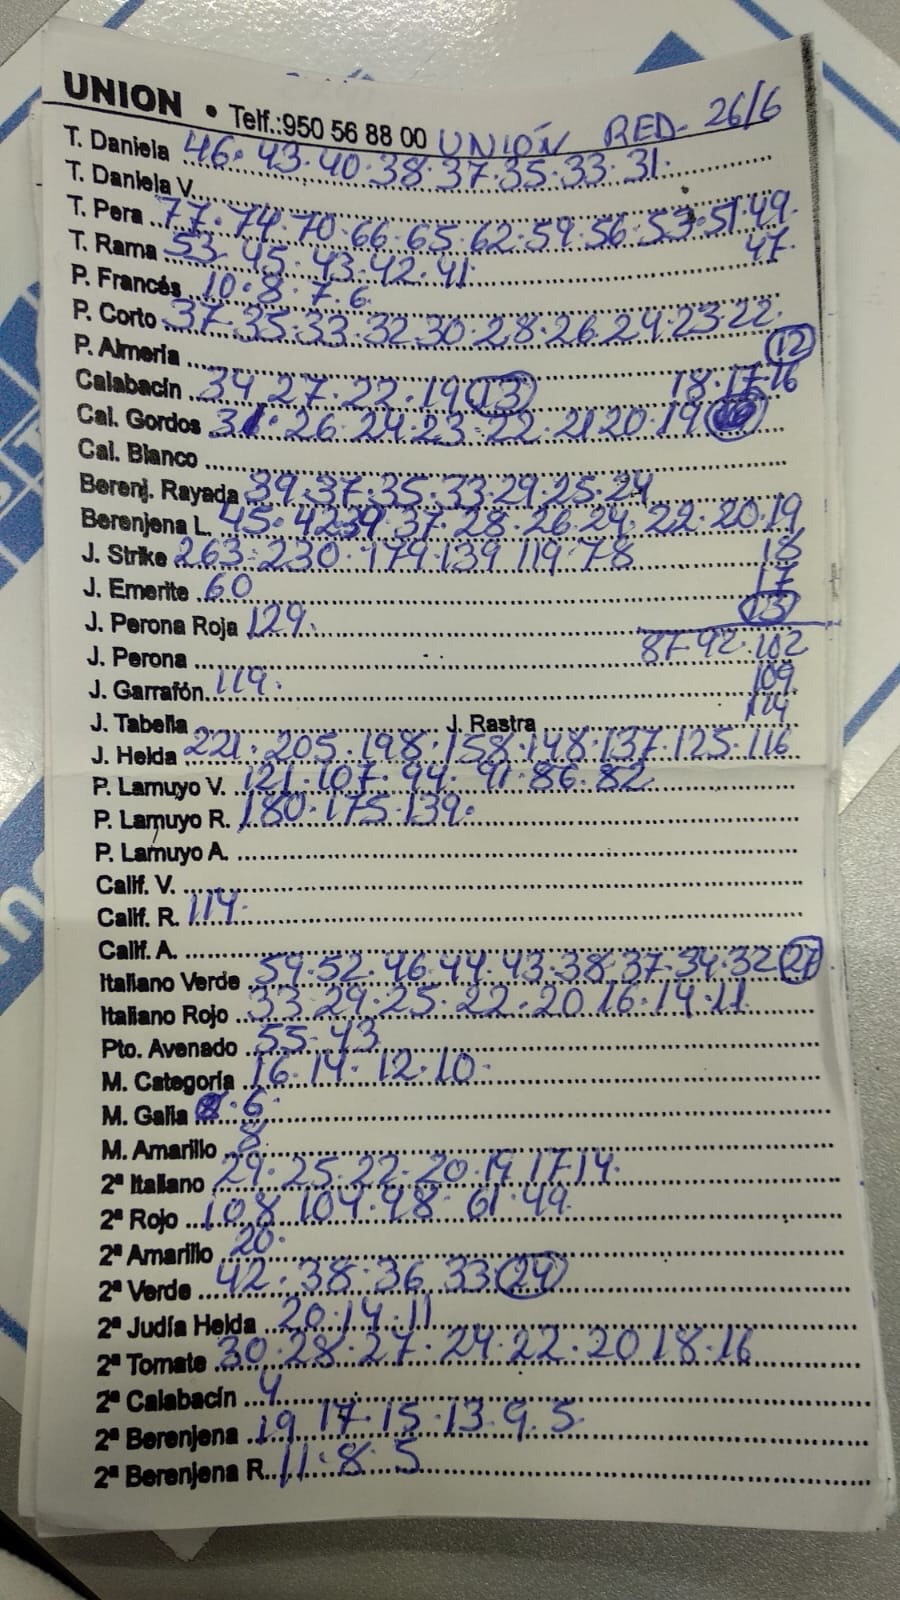 UNION • Telf.:950 56 88 00 UNIÓN RED- 26/6
T. Daniela 46. 43. 40. 38. 37. 35. 33. 31.
T. Daniela V.
T. Pera 77. 74. 70. 66. 65. 62. 59. 56. 53. 51. 49.
T. Rama 53. 45. 43. 42. 41. 47.
P. Francés 10. 8. 7. 6.
P. Corto 37. 35. 33. 32. 30. 28. 26. 24. 23. 22.
P. Almería 12
Calabacín 34 27. 22. 19 13 18. 17. 16
Cal. Gordos 31. 26. 24. 23. 22. 21 20. 19
Cal. Blanco
Berenj. Rayada 39. 37. 35. 33. 29. 25. 24
Berenjena L. 45. 42 39. 37. 28. 26. 24. 22. 20. 19
J. Strike 263. 230. 179. 139 119. 78 18
J. Emerite 60 17
J. Perona Roja 129. 13
J. Perona 87. 92. 102
J. Garrafón. 119. 109.
J. Tabella J. Rastra 114
J. Helda 221. 205. 198. 158. 148. 137. 125. 116
P. Lamuyo V. 121. 107. 94. 91. 86. 82
P. Lamuyo R. 180. 175. 139.
P. Lamuyo A.
Calif. V.
Calif. R. 114.
Calif. A.
Italiano Verde 59. 52. 46. 44. 43. 38. 37. 34. 32 27
Italiano Rojo 33 29. 25. 22. 20 16. 14. 11
Pto. Avenado 55. 43
M. Categoría 16. 14. 12. 10.
M. Galia 8. 6.
M. Amarillo 8.
2ª Italiano 29. 25. 22. 20. 19 17 14.
2ª Rojo 108 104. 98. 61. 49.
2ª Amarillo 20.
2ª Verde 42. 38. 36 33 24
2ª Judía Helda 20. 14. 11
2ª Tomate 30. 28. 27. 24. 22. 20 18. 16
2ª Calabacín 4
2ª Berenjena 19 17. 15. 13. 9. 5.
2ª Berenjena R. 11. 8. 5